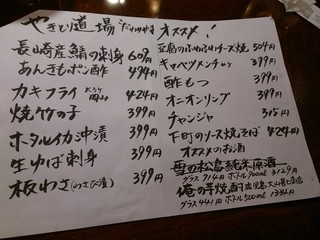 やきとり道場 オススメ!
長崎産鯖の刺身 609円
あんきもポン酢 494円
カキフライ 424円
焼竹の子 399円
ホタルイカ沖漬 399円
生ゆば刺身 399円
板わさ(わさび漬) 399円
豆腐のふわふわチーズ焼 504円
キャベツメンチカツ 399円
酢もつ 399円
オニオンリング 399円
チャンジャ 315円
下町のソース焼そば 424円
オススメのお酒
雪の松島 純米原酒
グラス 714円 ボトル900ml 3129円
俺の芋焼酎 鹿児島 大山甚七商店
グラス 441円 ボトル500ml 1334円